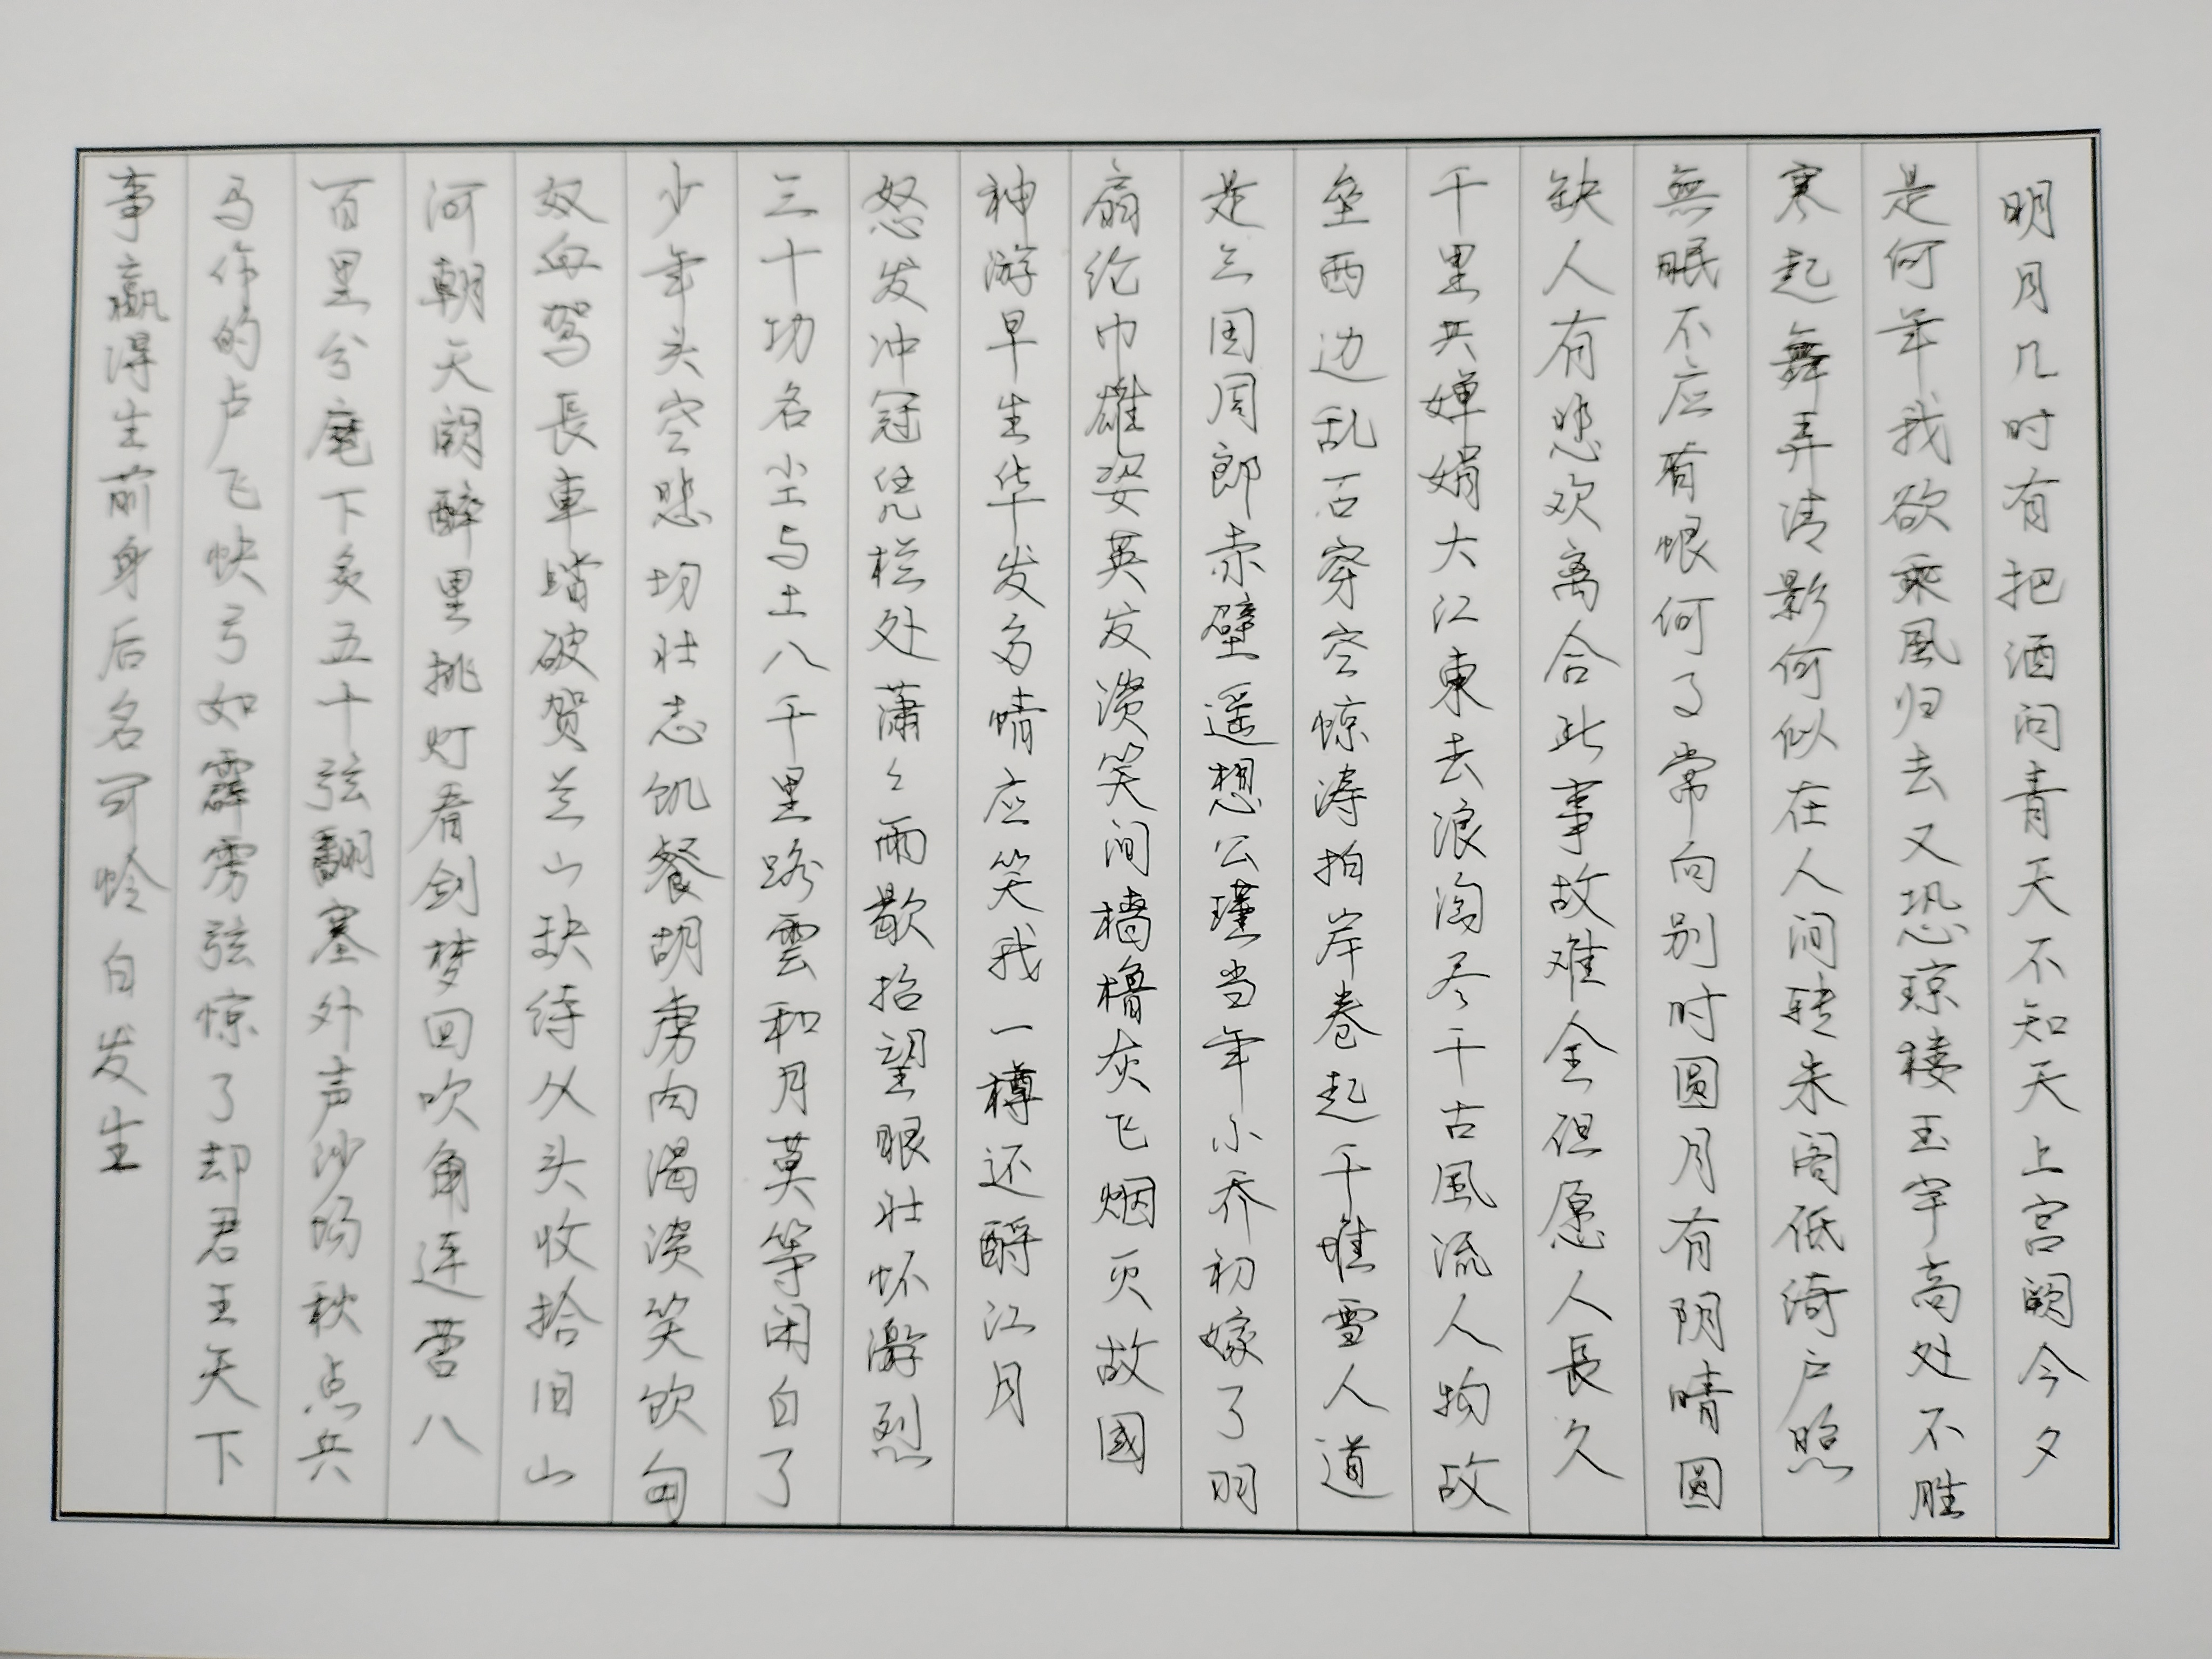 明月几时有把酒问青天不知天上宫阙今夕
是何年我欲乘風归去又恐琼楼玉宇高处不胜
寒起舞弄清影何似在人间转朱阁低绮户照
無眠不应有恨何事常向别时圆月有阴晴圆
缺人有悲欢离合此事故难全但愿人長久
千里共婵娟大江東去浪淘尽千古風流人物故
垒西边乱石穿空惊涛拍岸卷起千堆雪人道
是三国周郎赤壁遥想公瑾当年小乔初嫁了羽
扇纶巾雄姿英发淡笑间樯橹灰飞烟灭故國
神游早生华发多情应笑我一樽还酹江月
怒发冲冠凭栏处潇々雨歇抬望眼壮怀激烈
三十功名尘与土八千里路雲和月莫等闲白了
少年头空悲切壮志饥餐胡虏肉渴淡笑饮匈
奴血驾長車踏破贺兰山缺待从头收拾旧山
河朝天阙醉里挑灯看剑梦回吹角连营八
百里分麾下炙五十弦翻塞外声沙场秋点兵
马作的卢飞快弓如霹雳弦惊了却君王天下
事赢得生前身后名可怜白发生